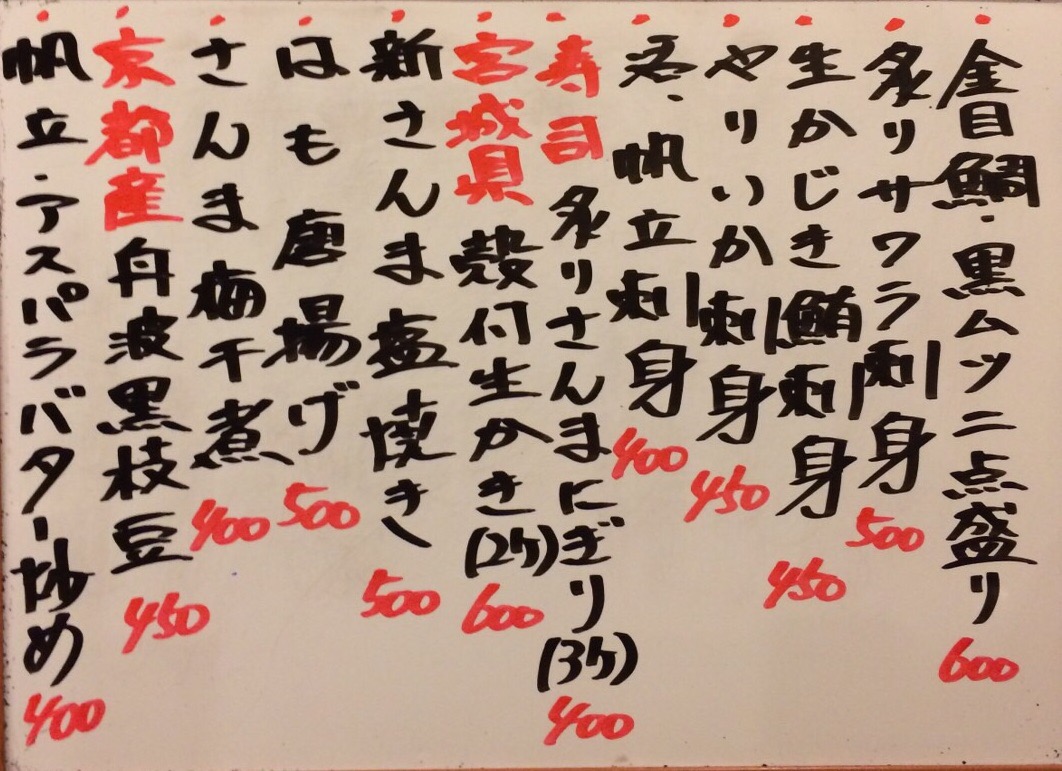 ・金目鯛・黒ムツ二点盛り 600
・炙りサワラ刺身 500
・生かじき鮪刺身 450
・やりいか刺身 450
・帆立刺身 400
・寿司 炙りさんまにぎり(3ケ) 400
・宮城県 殻付生かき(2ケ) 600
・新さんま塩焼き 500
・はも唐揚げ 500
・さんま梅干煮 400
・京都産 丹波黒枝豆 450
・帆立・アスパラバター炒め 400